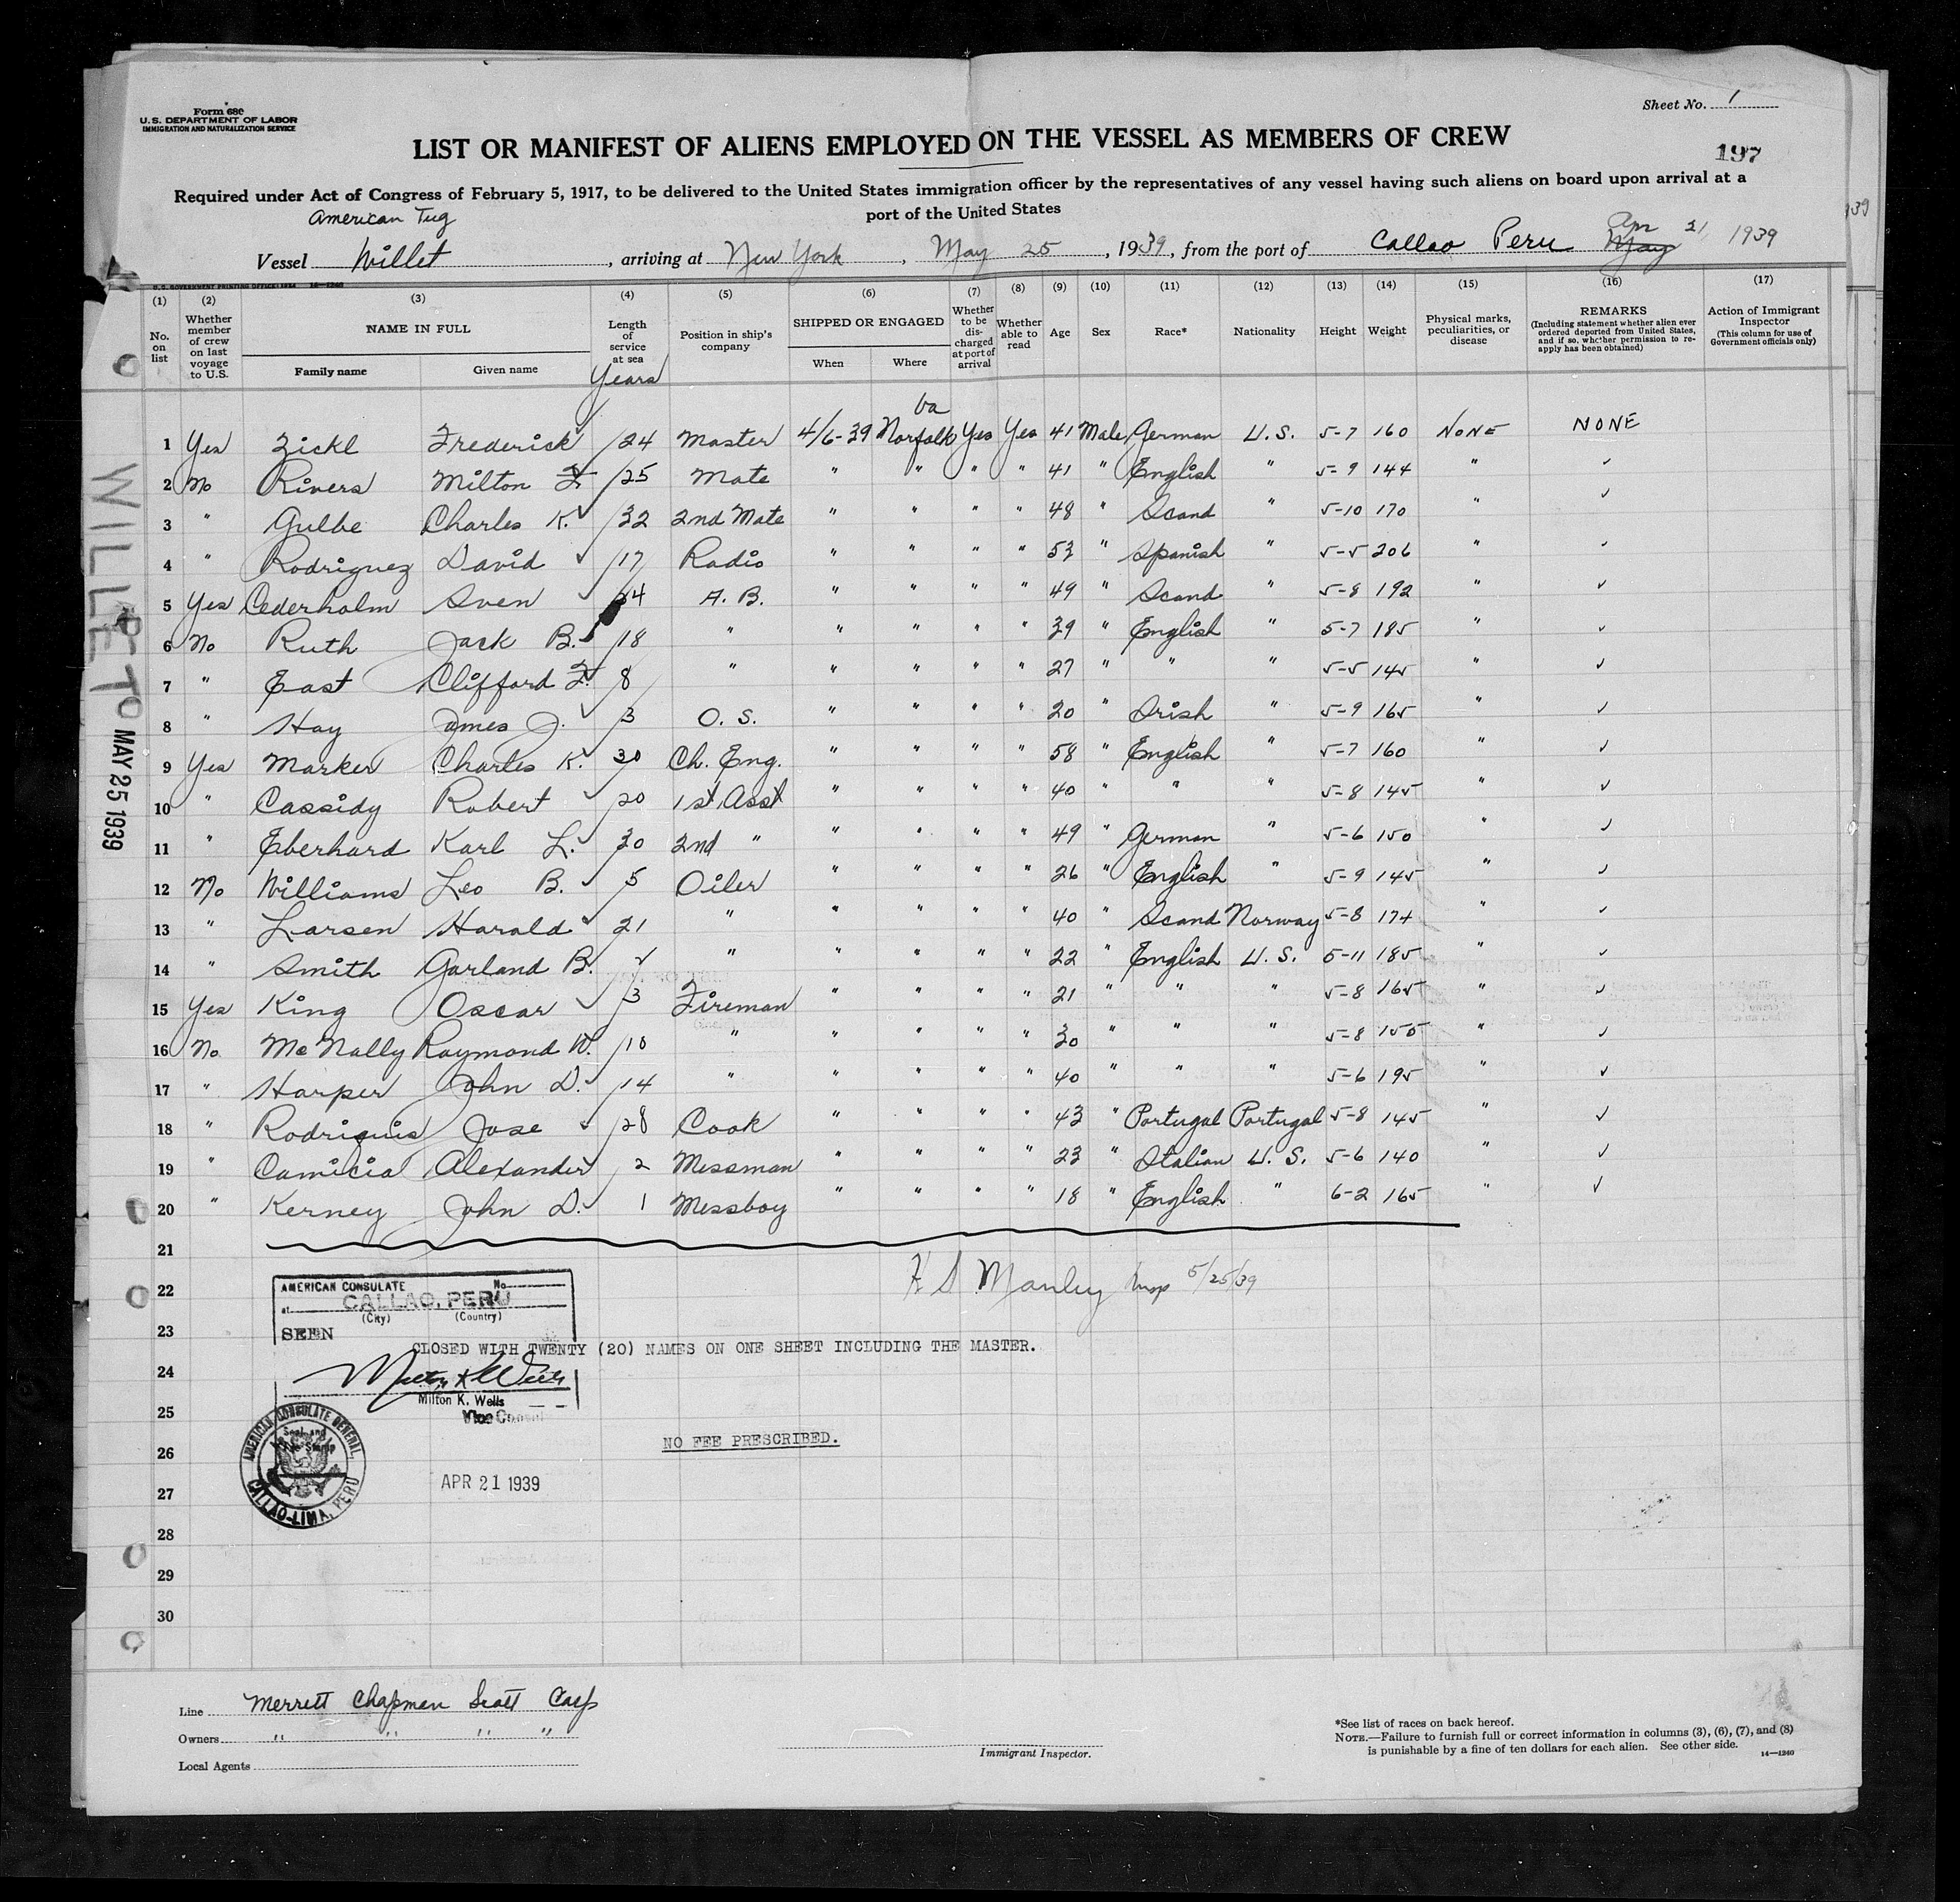 Form 680
U.S. DEPARTMENT OF LABOR
IMMIGRATION AND NATURALIZATION SERVICE
Sheet No. 1
LIST OR MANIFEST OF ALIENS EMPLOYED ON THE VESSEL AS MEMBERS OF CREW
197
Required under Act of Congress of February 5, 1917, to be delivered to the United States immigration officer by the representatives of any vessel having such aliens on board upon arrival at a
port of the United States
American Tug
Vessel Willet, arriving at New York, May 25, 1939, from the port of Callao Peru May Apr 21 1939
(1) (2) (3) (4) (5) (6) (7) (8) (9) (10) (11) (12) (13) (14) (15) (16) (17)
No. on list
Whether member of crew on last voyage to U.S.
NAME IN FULL
Family name
Given name
Length of service at sea
Years
Position in ship's company
SHIPPED OR ENGAGED
When
Where
Whether to be discharged at port of arrival
Whether able to read
Age
Sex
Race*
Nationality
Height
Weight
Physical marks, peculiarities, or disease
REMARKS
(Including statement whether alien ever ordered deported from United States, and if so, whether permission to reapply has been obtained)
Action of Immigrant Inspector
(This column for use of Government officials only)
Va
1 Yes Zickl Frederick 24 Master 4/6-39 Norfolk Yes Yes 41 Male German U.S. 5-7 160 NONE NONE
2 No Rivers Milton F. 25 Mate " " " " 41 " English " 5-9 144 " ✓
3 " Gulbe Charles K. 32 2nd Mate " " " " 48 " Scand " 5-10 170 " ✓
4 " Rodriguez David 17 Radio " " " " 53 " Spanish " 5-5 206 " ✓
5 Yes Cederholm Sven 34 A.B. " " " " 49 " Scand " 5-8 192 " ✓
6 No Ruth Jack B. 18 " " " " " 39 " English " 5-7 185 " ✓
7 " East Clifford F. 8 " " " " " 27 " " " 5-5 145 " ✓
8 " Hay James J. 3 O.S. " " " " 20 " Irish " 5-9 165 " ✓
9 Yes Marker Charles K. 30 Ch. Eng. " " " " 58 " English " 5-7 160 " ✓
10 " Cassidy Robert 20 1st Asst " " " " 40 " " " 5-8 145 " ✓
11 " Eberhard Karl L. 30 2nd " " " " " 49 " German " 5-6 150 " ✓
12 No Williams Leo B. 5 Oiler " " " " 26 " English " 5-9 145 " ✓
13 " Larsen Harald 21 " " " " " 40 " Scand Norway 5-8 174 " ✓
14 " Smith Garland B. " " " " " 22 " English U.S. 5-11 185 " ✓
15 Yes King Oscar 3 Fireman " " " " 21 " " " 5-8 165 " ✓
16 No McNally Raymond W. 10 " " " " " 30 " " " 5-8 155 " ✓
17 " Harper John D. 14 " " " " " 40 " " " 5-6 195 " ✓
18 " Rodriquis Jose 28 Cook " " " " 43 " Portugal Portugal 5-8 145 " ✓
19 " Camicia Alexander 2 Messman " " " " 23 " Italian U.S. 5-6 140 " ✓
20 " Kerney John D. 1 Messboy " " " " 18 " English " 6-2 165 " ✓
21
22
23
24
25
26
27
28
29
30
WILLET TO MAY 25 1939
Manley Insp 5/25/39
AMERICAN CONSULATE No.
at CALLAO, PERU
(City) (Country)
SEEN
CLOSED WITH TWENTY (20) NAMES ON ONE SHEET INCLUDING THE MASTER.
Milton K Wells
Milton K. Wells
Vice Consul
AMERICAN CONSULATE GENERAL
CALLAO-LIMA, PERU
NO FEE PRESCRIBED.
APR 21 1939
Line Merrett Chapman Scott Corp
Owners " " " "
Local Agents
Immigrant Inspector.
*See list of races on back hereof.
NOTE.—Failure to furnish full or correct information in columns (3), (6), (7), and (8)
is punishable by a fine of ten dollars for each alien. See other side.
14—1240